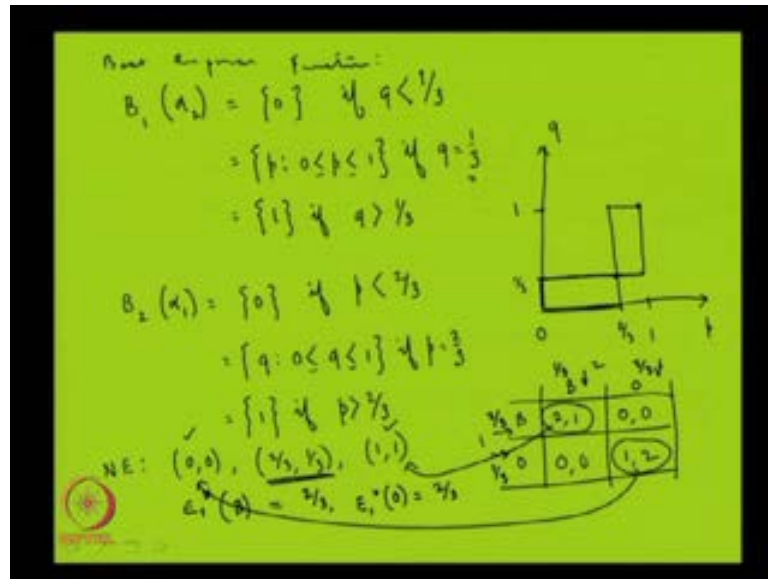 Best response function:
B₁ (α₂) = {0} if q < 1/3
= {p: 0 ≤ p ≤ 1} if q = 1/3
= {1} if q > 1/3
B₂ (α₁) = {0} if p < 2/3
= {q: 0 ≤ q ≤ 1} if p = 2/3
= {1} if p > 2/3
NE: (0,0), (2/3, 1/3), (1,1)
E₁ (B) = 2/3, E₁ (0) = 2/3
q
1
1/3
0 2/3 1 p
2
1/3 2/3
B 0
1
2/3 B 2,1 0,0
1/3 0 0,0 1,2